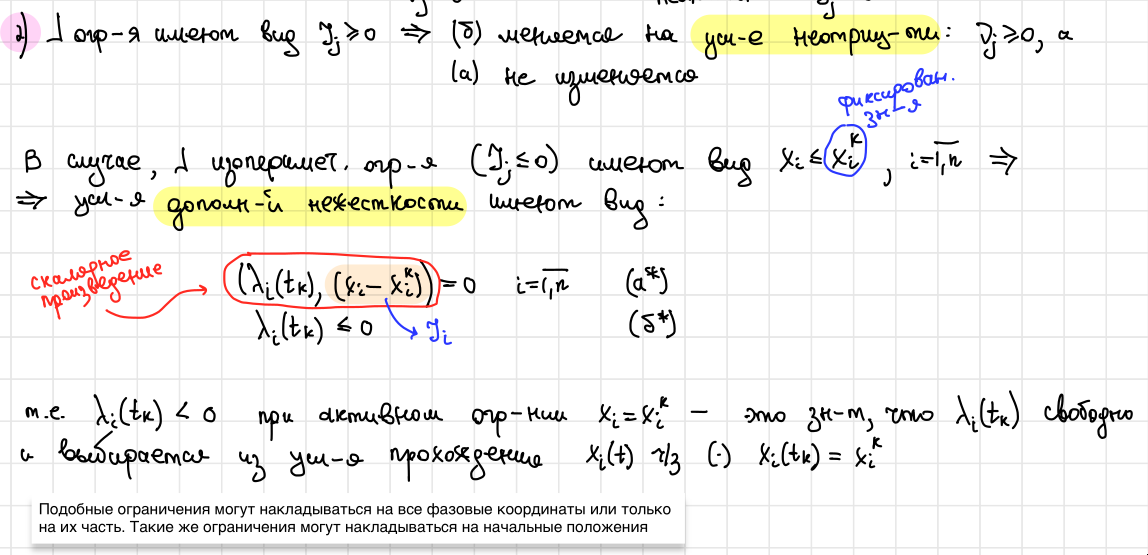 2) ⅄ огр-я имеют вид J_j ≥ 0 ⇒ (б) меняется на усл-е неотриц-ти: ν_j ≥ 0, а
(а) не изменяется
фиксирован.
зн-я
В случае, ⅄ изопериметр. огр-я (J_j ≤ 0) имеют вид x_i ≤ x_i^k, i=1,n ⇒
⇒ усл-я дополн-й нежесткости имеют вид:
скалярное
произведение
(λ_i(t_k), (x_i − x_i^k)) = 0 i=1,n (а*)
λ_i(t_k) ≤ 0 J_i (б*)
т.е. λ_i(t_k) < 0 при активном огр-нии x_i = x_i^k – это зн-т, что λ_i(t_k) свободно
и выбирается из усл-я прохождения x_i(t) ч/з (·) x_i(t_k) = x_i^k
Подобные ограничения могут накладываться на все фазовые координаты или только
на их часть. Такие же ограничения могут накладываться на начальные положения